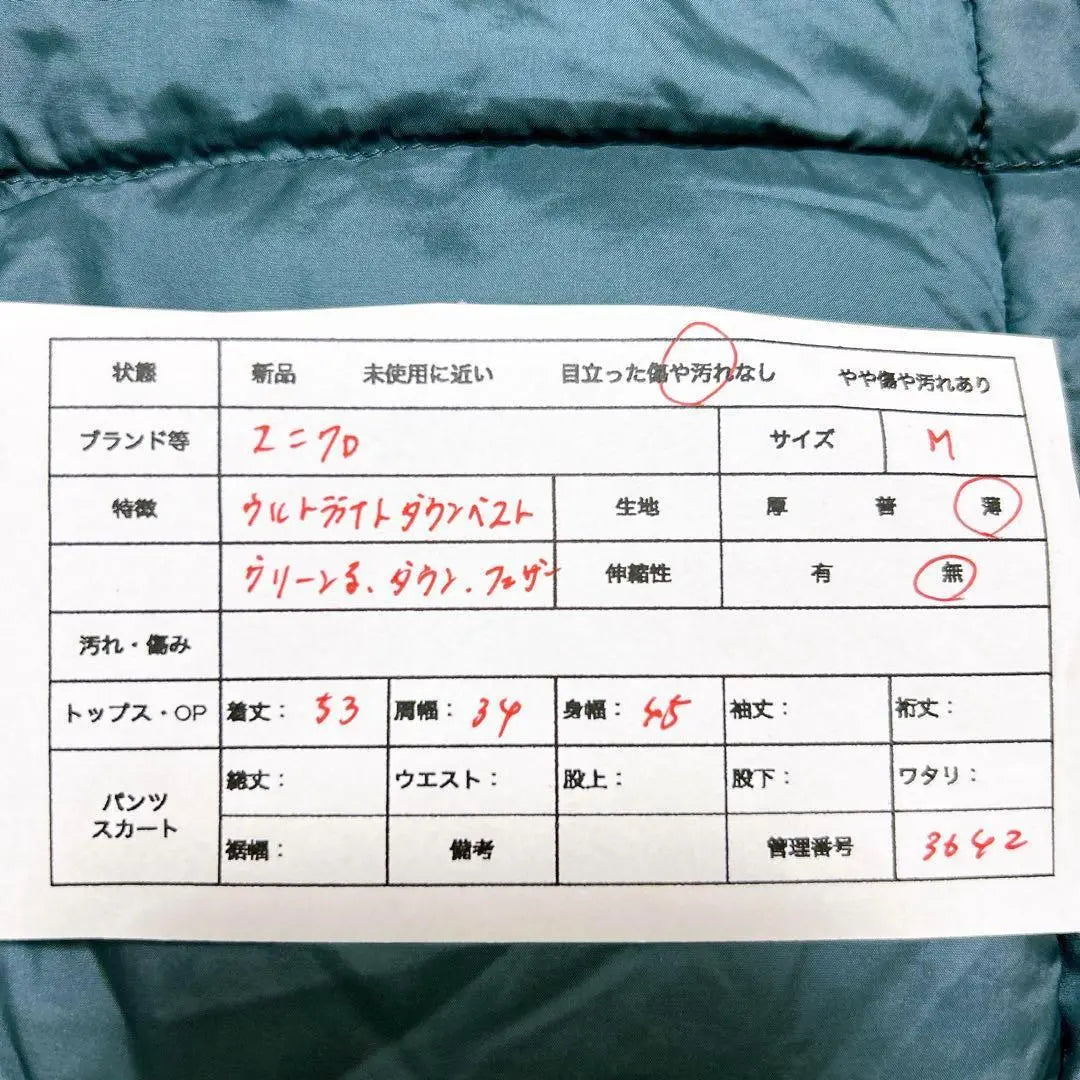 状態 新品 未使用に近い 目立った傷や汚れなし やや傷や汚れあり
ブランド等 ユニクロ サイズ M
特徴 ウルトラライトダウンベスト 生地 厚 普 薄
グリーン系、ダウン、フェザー 伸縮性 有 無
汚れ・傷み
トップス・OP 着丈: 53 肩幅: 34 身幅: 45 袖丈: 裄丈:
パンツ スカート
総丈: ウエスト: 股上: 股下: ワタリ:
裾幅: 備考 管理番号 3642